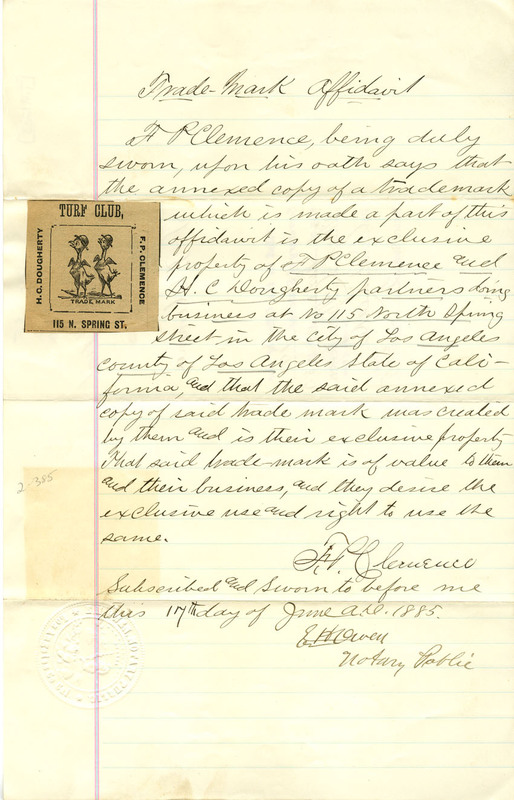 Trade-Mark Affidavit
F P Clemence, being duly
sworn, upon his oath says that
the annexed copy of a trademark
which is made a part of this
affidavit is the exclusive
property of F P Clemence and
H. C Dougherty partners doing
business at No 115 North Spring
street in the city of Los Angeles
county of Los Angeles State of Cali-
fornia, and that the said annexed
copy of said trade mark was created
by them and is their exclusive property
That said trade-mark is of value to them
and their business, and they desire the
exclusive use and right to use the
same.
F. P. Clemence
Subscribed and Sworn to before me
this 17th day of June A.D. 1885.
E H Owen
Notary Public
TURF CLUB,
H.C. DOUGHERTY
F.P. CLEMENCE
TRADE MARK
115 N. SPRING ST.
2-385